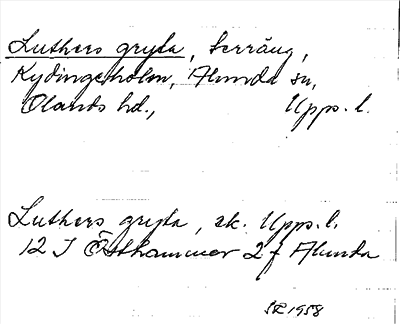 Luthers gryta, terräng,
Kydingeholm, Alunda sn,
Olands hd., Upps. l.
Luthers gryta, ek. Upps. l.
12 I Östhammar 2 f Alunda
SR 1958